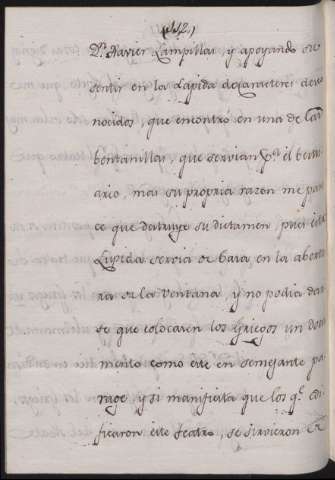 (112.)
Dn. Xavier Lampillas, y apoyando su
sentir en la Lapida de caracteres desco
nocidos, que encontró en una de las
bentanillas, que servian pa. el bestu
ario, mas su propria razon me pare
ce que destruye su dictamen, pues esta
Lapida servia de basa en la abertu
ra de la Ventana, y no podia dar
se que colocasen los Griegos un docu
mento como este en semejante pa
rage, y si manifiesta que los qe. edi
ficaron este teatro, se sirvieron